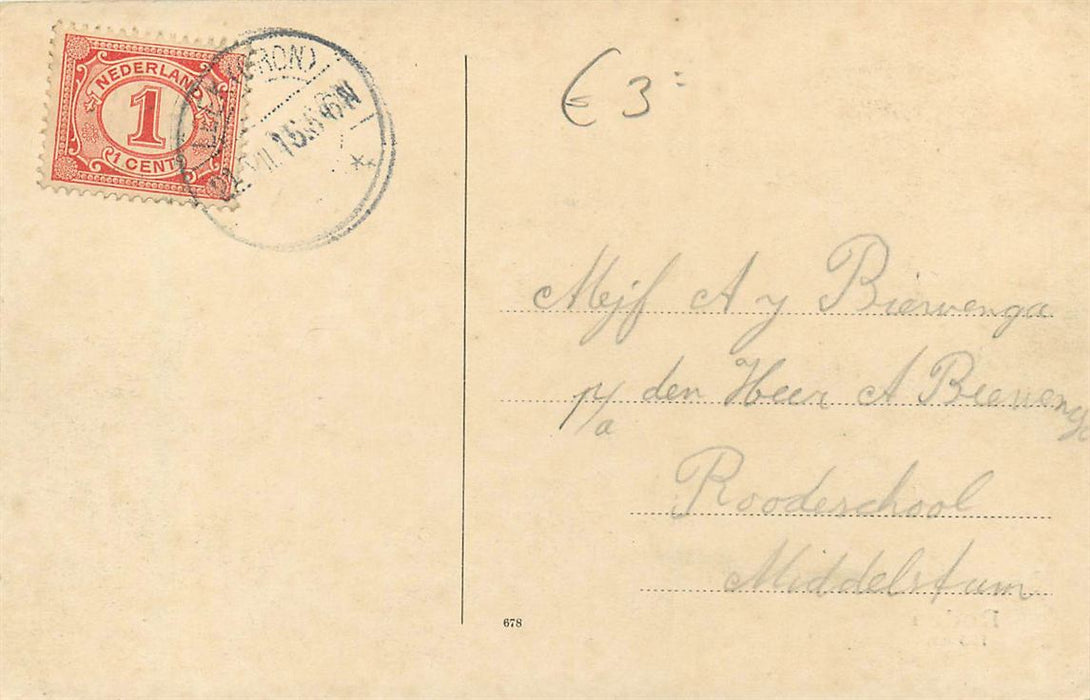 NEDERLAND
1
1 CENT
LEEK (GRON)
VII 15.5-6N
€ 3=
Mejf A y Bierwenga
p/a den Heer A Bierwenga
Roodeschool
Middelstum
678